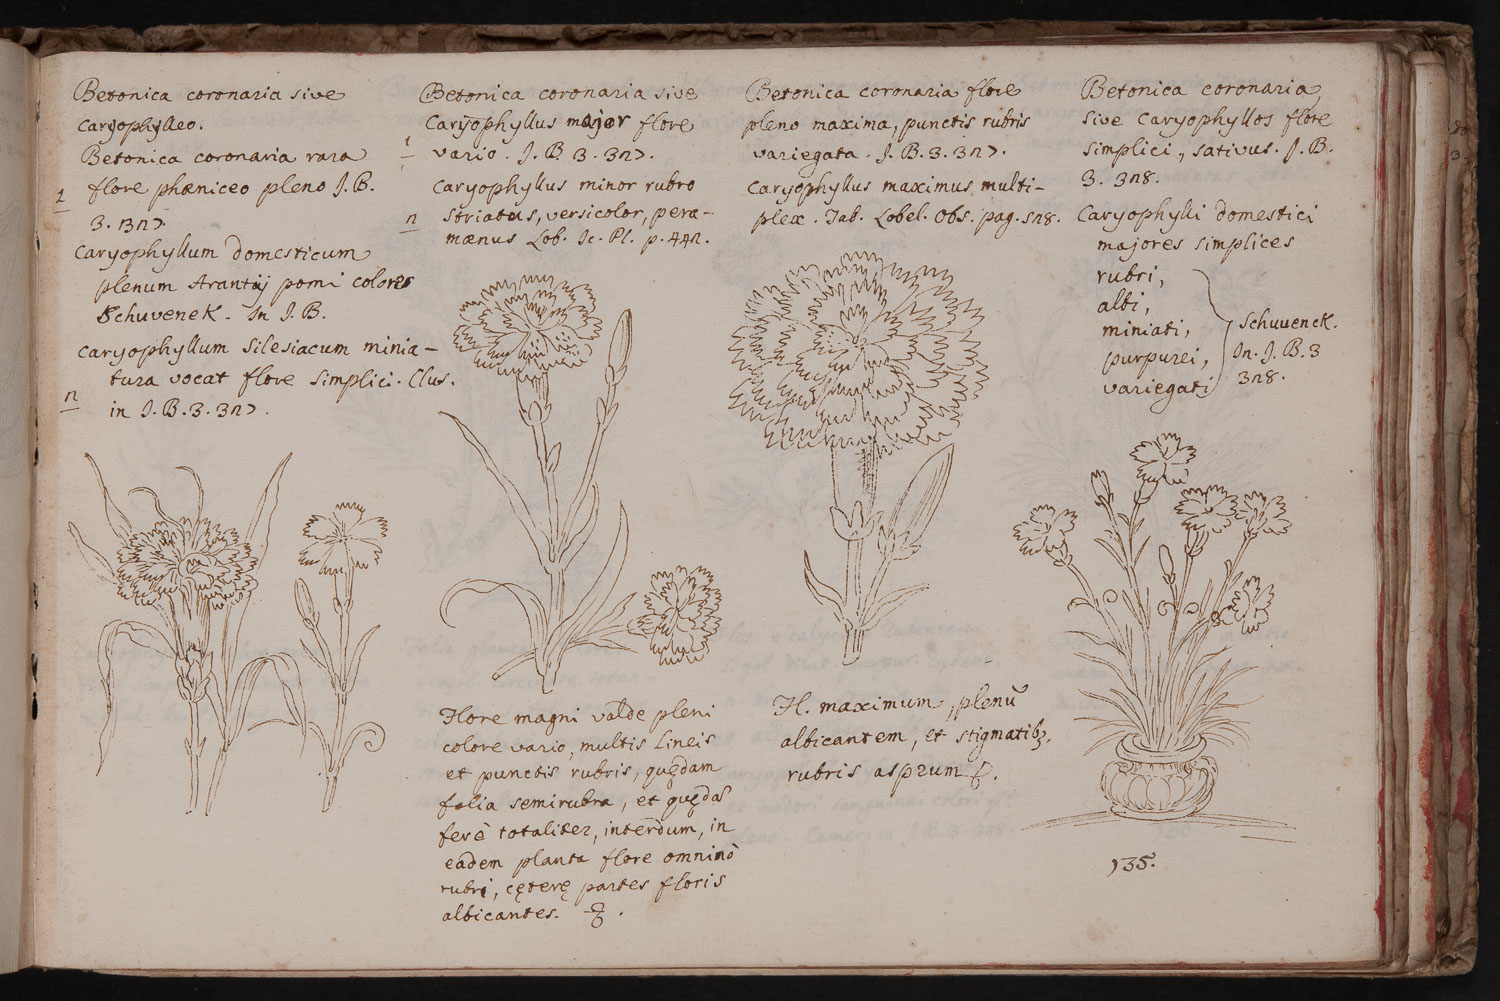 Betonica coronaria sive
caryophylleo.
Betonica coronaria rara
1 flore phæniceo pleno J. B.
3.
Caryophyllum domesticum
plenum Arantij pomi coloris
Schuvenek. In J. B.
Caryophyllum Silesiacum minia-
tura vocat flore simplici. Clus.
n in J. B. 3. 327.
Betonica coronaria sive
Caryophyllus major flore
1 vario. J. B. 3. 327.
Caryophyllus minor rubro
n striatus, versicolor, pera-
mænus Lob. Ic. Pl. p. 442.
Flore magni valde pleni
colore vario, multis Lineis
et punctis rubris, quędam
folia semirubra, et quędā
ferè totaliter, interdum, in
eadem planta flore omninò
rubri, cęterę partes floris
albicantes.
Betonica coronaria flore
pleno maxima, punctis rubris
variegata. J. B. 3. 327.
Caryophyllus maximus multi-
plex. Tab. Lobel. Obs. pag.
Fl. maximum, plenū
albicantem, et stigmatibꝫ.
rubris asprum
Betonica coronaria
sive Caryophyllos flore
simplici, sativus. J. B.
3. 328.
Caryophylli domestici
majores simplices
rubri,
albi,
miniati,
purpurei,
variegati
Schuvenck.
In. J. B. 3
328.
135.